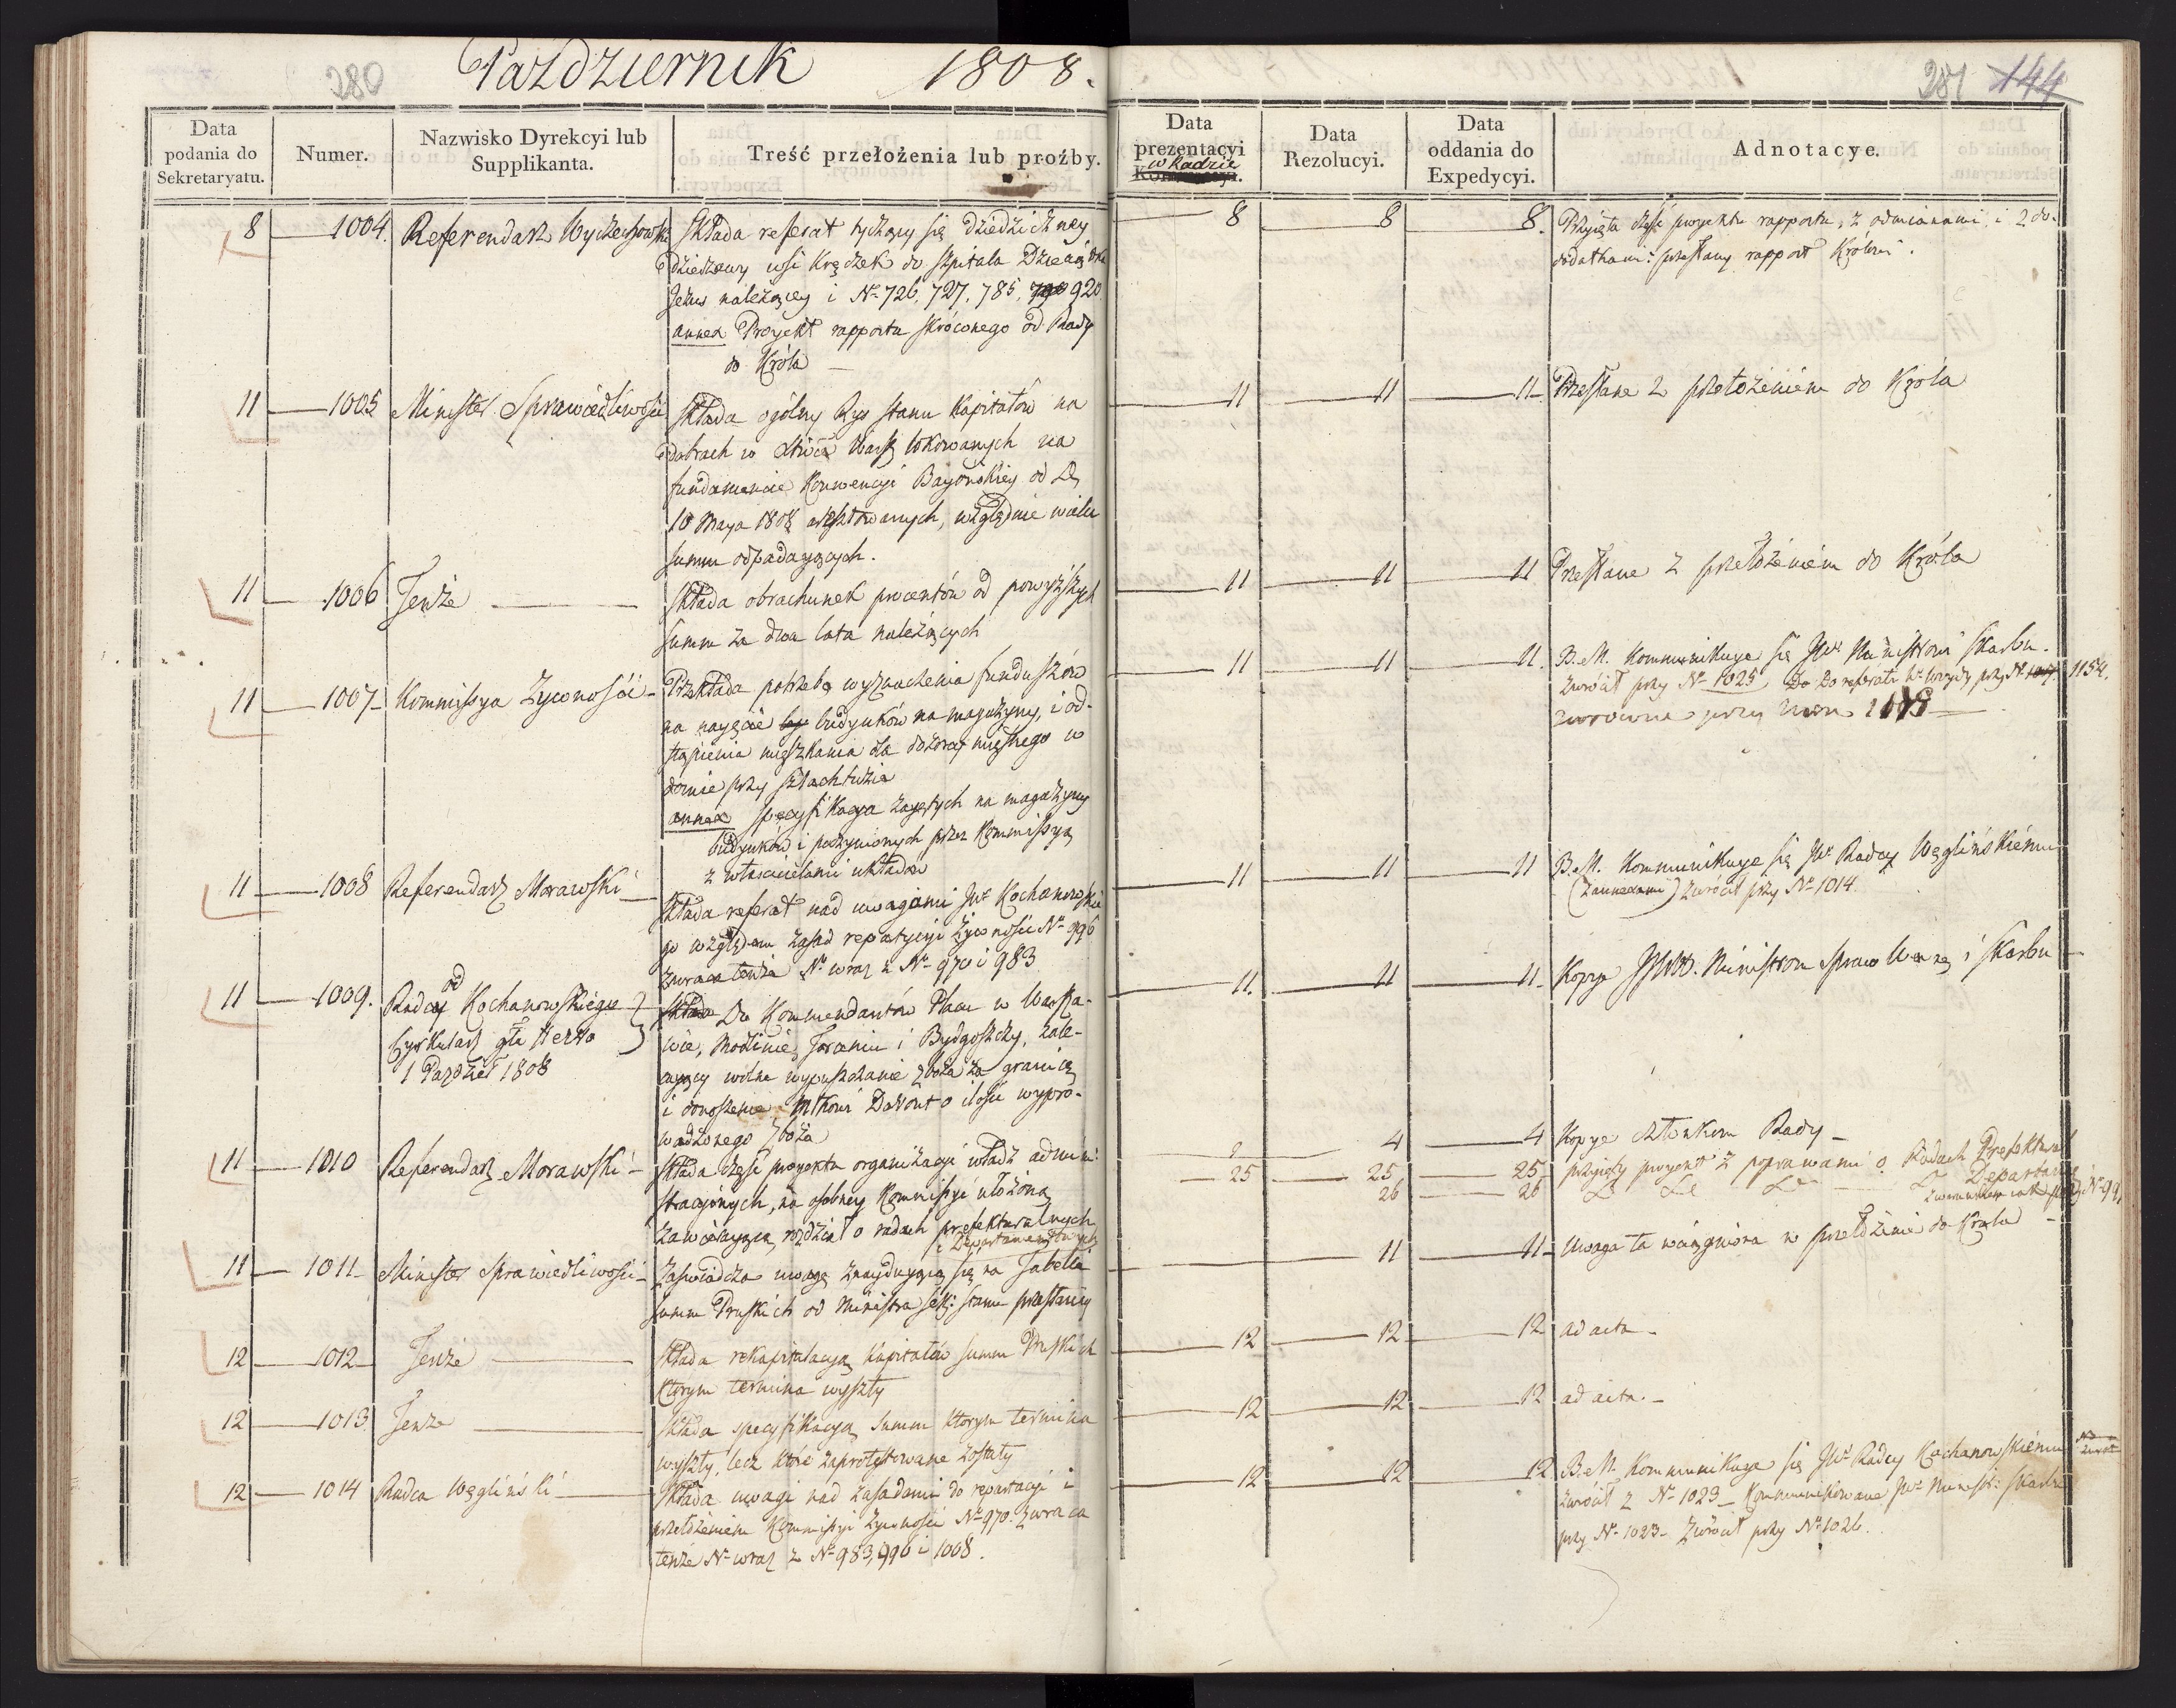 280
Październik 1808.
Data podania do Sekretaryatu.
Numer.
Nazwisko Dyrekcyi lub Supplikanta.
Treść przełożenia lub proźby.
8 1004. Referendarz Wyczechowski
Składa referat tyczący się dziedziczney
dziedzawy wsi Kręczek do szpitala Dzieciątka
Jezus należącey i Nº 726, 727, 785, 920
annex Proyekt rapportu skróconego od Rady
do Króla
11 1005 Minister Sprawiedliwości
Składa ogólny Rys stanu Kapitałów na
dobrach w Xtwie Warsz lokowanych na
fundamencie Konwencyi Bayońskiey od D.
10 Maya 1808 aresztowanych, względnie wielu
summ odpadaiących.
11 1006 Tenże
Składa obrachunek procentów od powyższych
summ za dwa lata należących
11 1007 Kommissya Żywności
Przekłada potrzebę wyznaczenia funduszów
na naięcie budynków na magazyny, i od-
stąpienia mieszkania dla dozorcy mieyskiego w
domie przy szlachtuzie
annex specyfikacya zaiętych na magazyny
budynków i poczynionych przez Kommissyą
z właścicielami układów
11 1008 Referendarz Morawski
Składa referat nad uwagami JW. Kochanowskie
go względem zasad repartycyi żywności Nº 996
zwraca tenże Nº wraz z Nº 970 i 983
11 1009. od Radcy Kochanowskiego
Cyrkularz gła Hertto
1 Paźdźier 1808
Do Kommendantów Placu w Warsza-
wie, Modlinie, Toruniu i Bydgoszczy, zale-
caiący wolne wypuszczanie zboża za granicę
i donoszenie Mtkowi Davout o ilości wypro-
wadzonego zboża
11 1010 Referendarz Morawski
Składa część proyektu organizacyi władz admini-
stracyinych, na osobney Kommissyi ułożoną
zawieraiącą rozdział o radach prefekturalnych
i Departamentowych
11 1011 Minister Sprawiedliwości
Zaświadcza uwagę znayduiącą się na Tabelli
summ Pruskich od Ministra Sek: stanu przesłaney
12 1012 Tenże
Składa rekapitulacyą kapitałów summ Pruskich
którym termina wyszły
12 1013 Tenże
Składa specyfikacyą summ którym termina
wyszły, lecz które zaprotestowane zostały
12 1014 Radca Węgliński
Składa uwagi nad zasadami do repartacyi i
przełożeniem Kommissyi żywności Nº 970. zwraca
tenże Nº wraz z Nº 983, 996 i 1008.
281 144
Data prezentacyi w Radzie
Data Rezolucyi.
Data oddania do Expedycyi.
Adnotacye.
8 8 8. Przyięta część proyektu rapportu, z odmianami i 2 do-
dodatkami: przesłany rapport Królowi.
11 11 11 Przesłane z przełożeniem do Króla
11 11 11 Przesłane z przełożeniem do Króla
11 11 11. B.M. Kommunikuye się JW. Ministrowi Skarbu.
zwrócił przy Nº 1025 Do referatu przy Nº 1154.
zwrócone przy Num 1178
11 11 11 B.M. Kommunikuye się JW. Radcy Węglińskiemu
(z annexami) zwrócił przy Nº 1014.
11. 11 11 Kopye JJWW. Ministrom Spraw Wewnę i Skarbu
4 4 Kopye członkom Rady
25 25 25 przyięty proyekt z poprawami o Radach Prefektural
26 26 Do Do Do Do Departam
11 11 Uwaga ta wciągniona w przełożenie do Króla
12 12 12 ad acta
12 12 12 ad acta.
12 12 12 B.M. Kommunikuye się JW. Radcy Kochanowskiemu
zwrócił z Nº 1023 Kommunikowane JW. Ministr: Skarbu
przy Nº 1023 zwrócił przy Nº 1026.